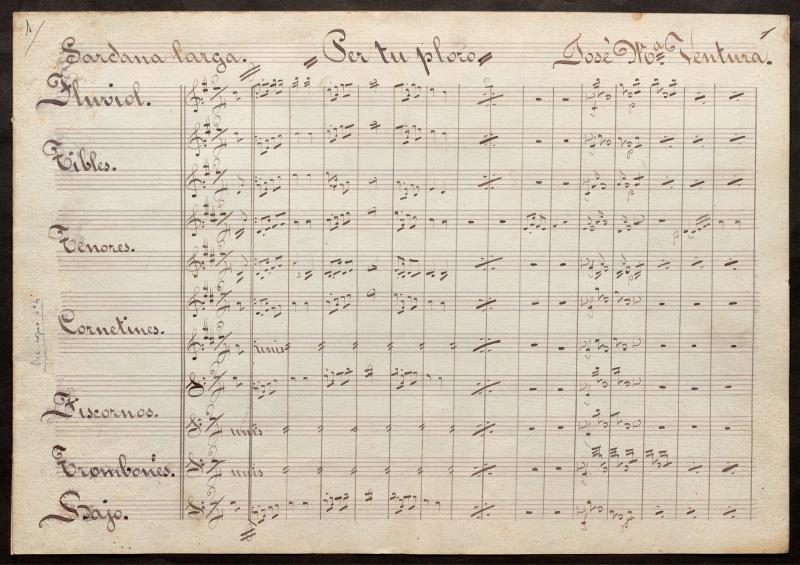 1/
1
Sardana larga. Per tu ploro José Mª Ventura.
Fluviol.
Tibles.
Tenores.
Cornetines.
unis
Fiscornos.
unis
Trombones.
unis
Bajo.